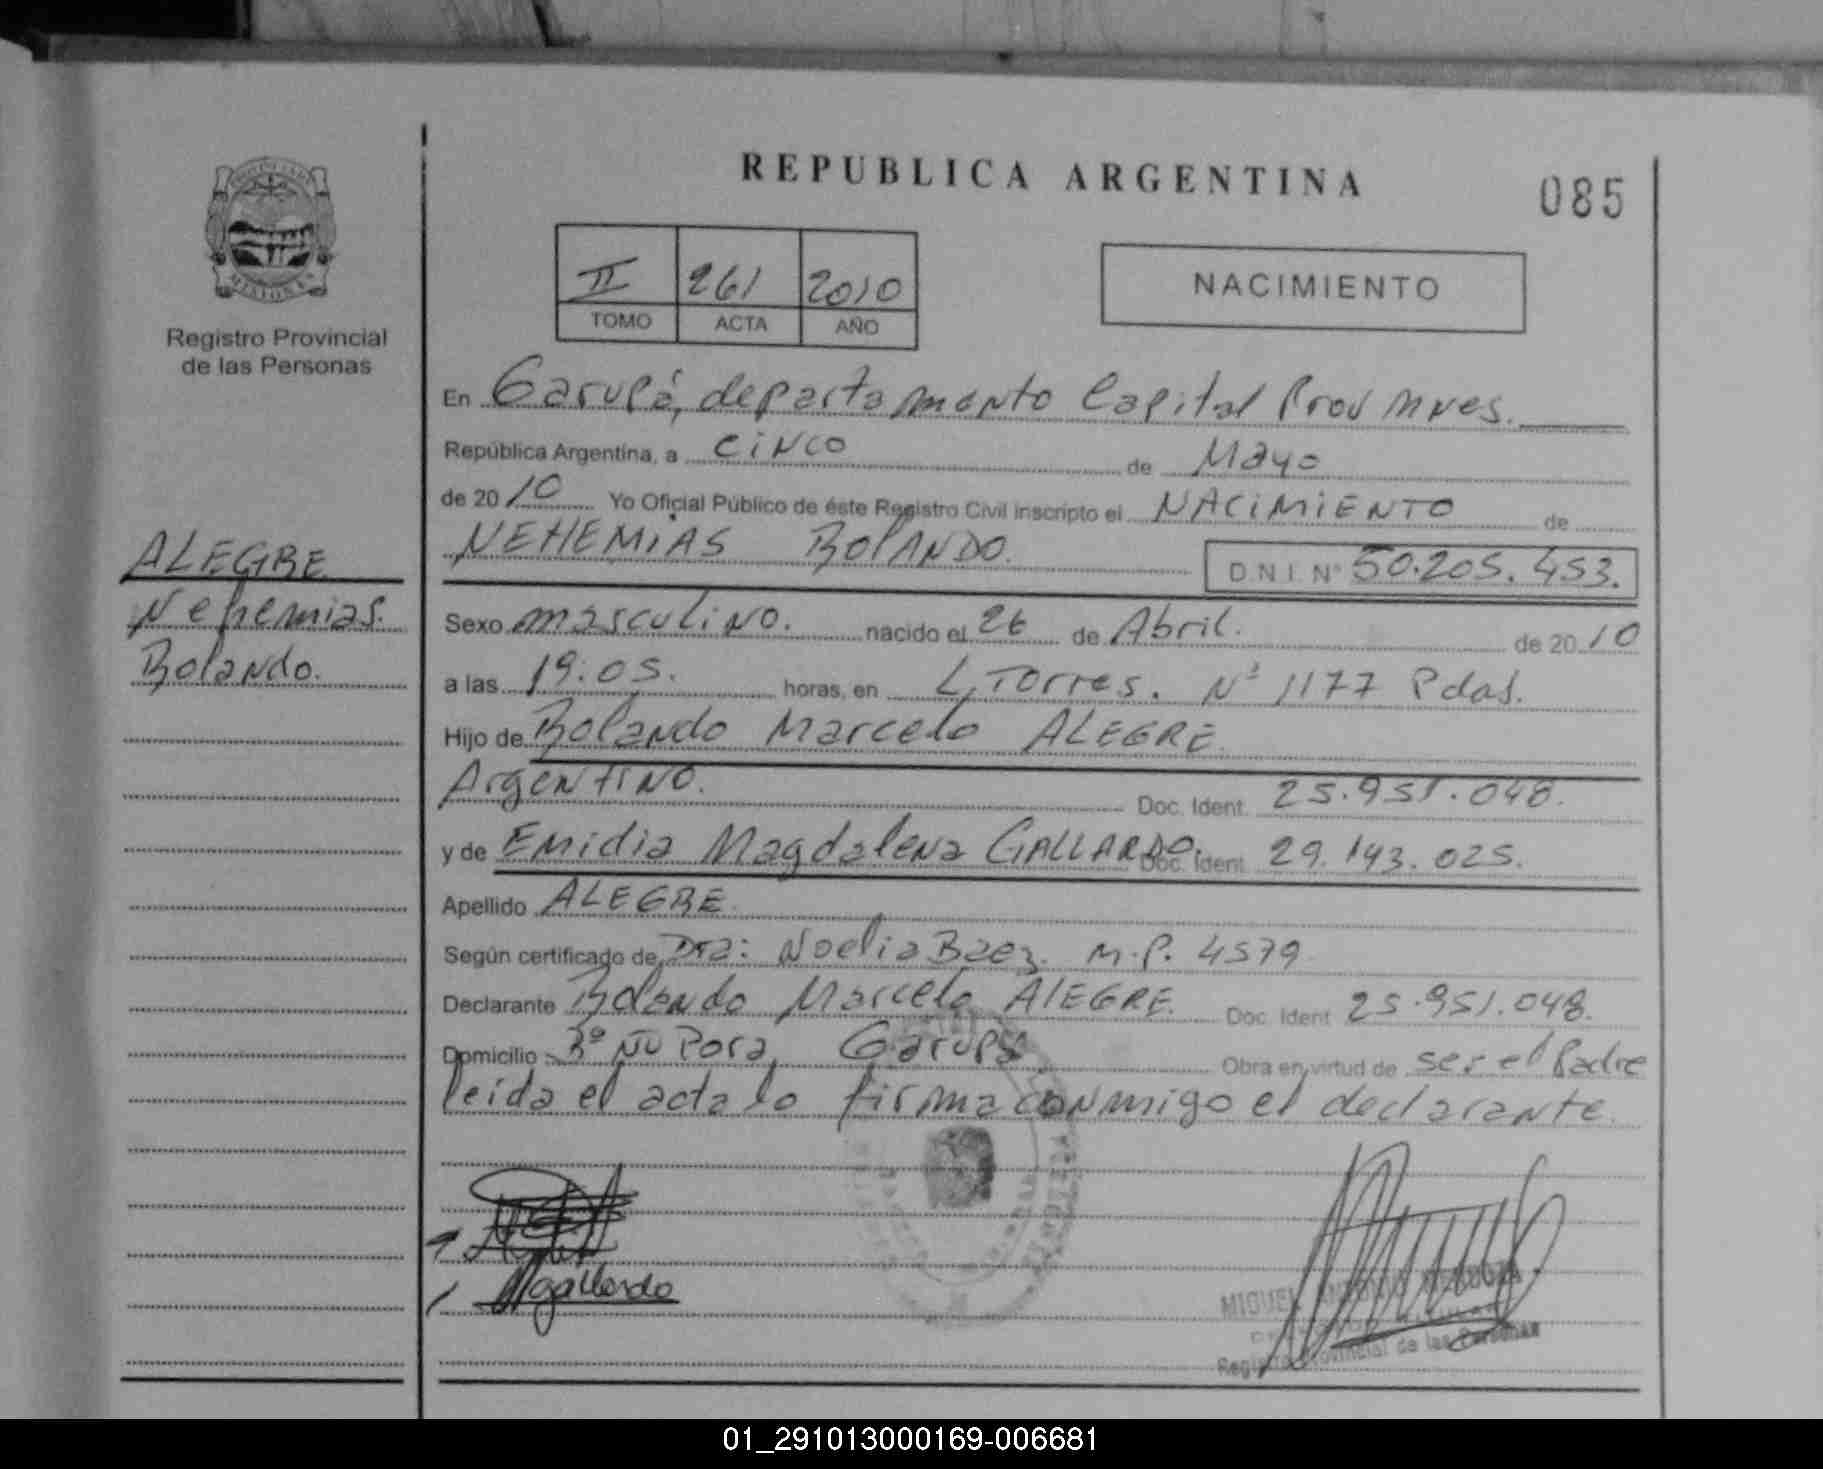 REPUBLICA ARGENTINA
085
II 261 2010
TOMO ACTA AÑO
NACIMIENTO
MISIONES
Registro Provincial
de las Personas
ALEGRE
Nehemias.
Rolando.
En Garupá, departamento Capital Prov Mnes.
República Argentina, a cinco de Mayo
de 20 10 Yo Oficial Público de éste Registro Civil inscripto el NACIMIENTO de
NEHEMIAS ROLANDO. D.N.I. Nº 50.205.453.
Sexo masculino. nacido el 26 de Abril. de 20 10
a las 19:05. horas, en L. Torres. Nº 1177 Pdas.
Hijo de Rolando Marcelo ALEGRE.
Argentino. Doc. Ident. 25.951.048.
y de Emidia Magdalena GALLARDO. Doc. Ident. 29.143.025.
Apellido ALEGRE.
Según certificado de Dra: Noelia Baez. M.P. 4579
Declarante Rolando Marcelo AlEGRE. Doc. Ident 25.951.048.
Domicilio Bº Ñu Pora, Garupá Obra en virtud de ser el Padre
leida el acta lo firma conmigo el declarante.
Mgallardo
MIGUEL ANTONIO
Registro Provincial de las Personas
01_291013000169-006681